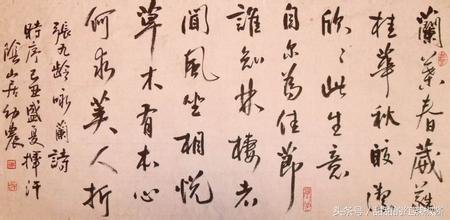 蘭葉春葳蕤
桂華秋皎潔
欣々此生意
自尔為佳節
誰知林棲者
聞風坐相悦
草木有本心
何求美人折
張九齡咏蘭詩
時序己丑盛夏揮汗
陰山居幼農
头条号 /